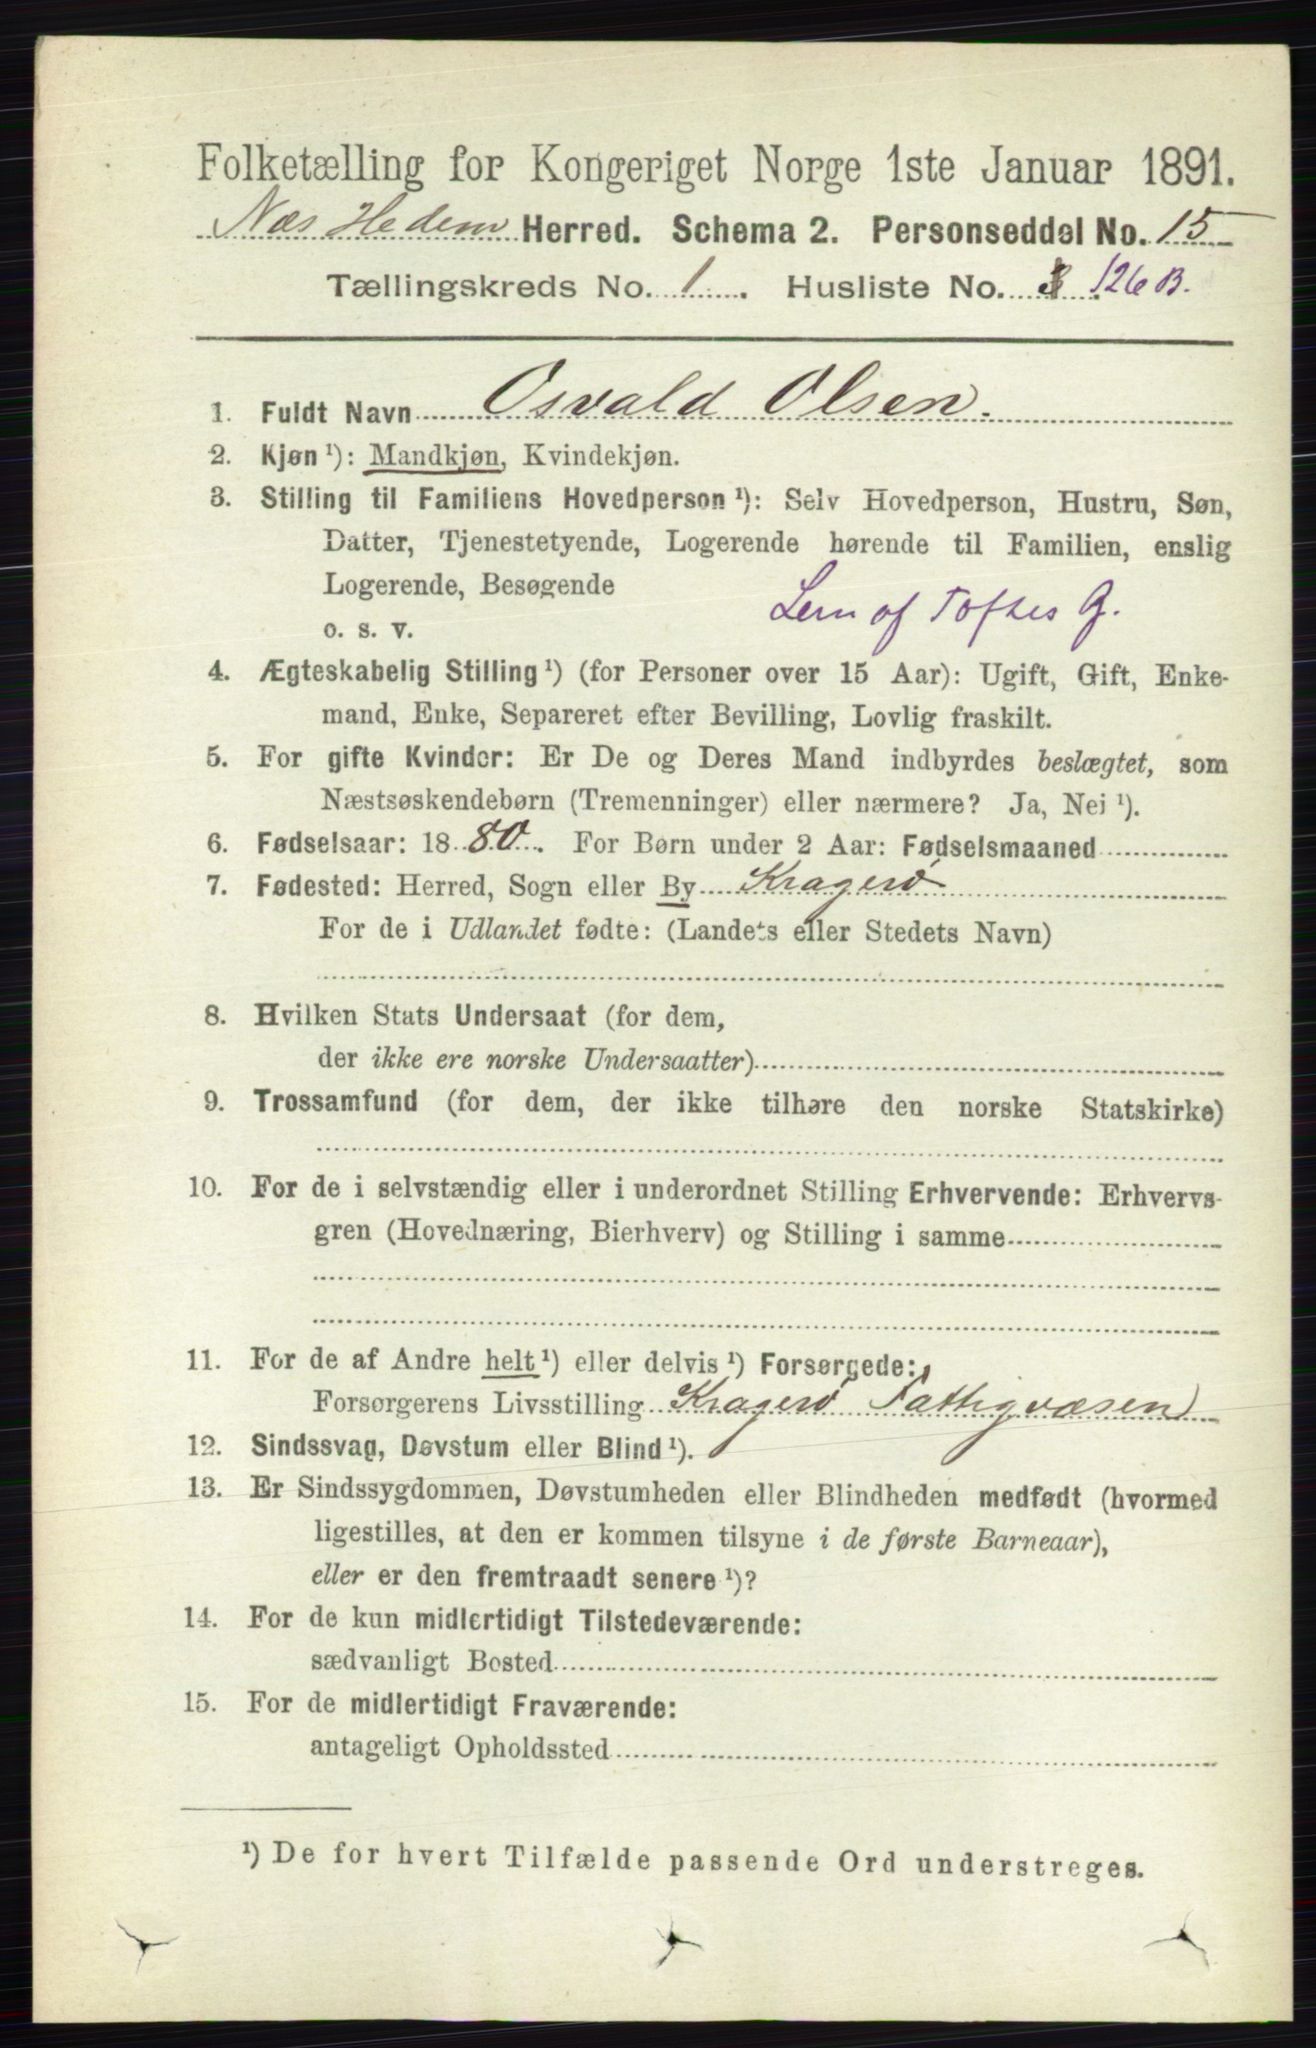 Folketælling for Kongeriget Norge 1ste Januar 1891.
Næs Hedem Herred. Schema 2. Personseddel No. 15
Tællingskreds No. 1. Husliste No. 126 B.
1. Fuldt Navn Osvald Olsen.
2. Kjøn ¹): Mandkjøn, Kvindekjøn.
3. Stilling til Familiens Hovedperson ¹): Selv Hovedperson, Hustru, Søn,
Datter, Tjenestetyende, Logerende hørende til Familien, enslig
Logerende, Besøgende
o. s. v. Lem af Toftes G.
4. Ægteskabelig Stilling ¹) (for Personer over 15 Aar): Ugift, Gift, Enke-
mand, Enke, Separeret efter Bevilling, Lovlig fraskilt.
5. For gifte Kvinder: Er De og Deres Mand indbyrdes beslægtet, som
Næstsøskendebørn (Tremenninger) eller nærmere? Ja, Nei ¹).
6. Fødselsaar: 1880. For Børn under 2 Aar: Fødselsmaaned
7. Fødested: Herred, Sogn eller By Kragerø
For de i Udlandet fødte: (Landets eller Stedets Navn)
8. Hvilken Stats Undersaat (for dem,
der ikke ere norske Undersaatter)
9. Trossamfund (for dem, der ikke tilhøre den norske Statskirke)
10. For de i selvstændig eller i underordnet Stilling Erhvervende: Erhvervs-
gren (Hovednæring, Bierhverv) og Stilling i samme
11. For de af Andre helt ¹) eller delvis ¹) Forsørgede:
Forsørgerens Livsstilling Kragerø Fattigvæsen
12. Sindssvag, Døvstum eller Blind ¹).
13. Er Sindssygdommen, Døvstumheden eller Blindheden medfødt (hvormed
ligestilles, at den er kommen tilsyne i de første Barneaar),
eller er den fremtraadt senere ¹)?
14. For de kun midlertidigt Tilstedeværende:
sædvanligt Bosted
15. For de midlertidigt Fraværende:
antageligt Opholdssted
¹) De for hvert Tilfælde passende Ord understreges.